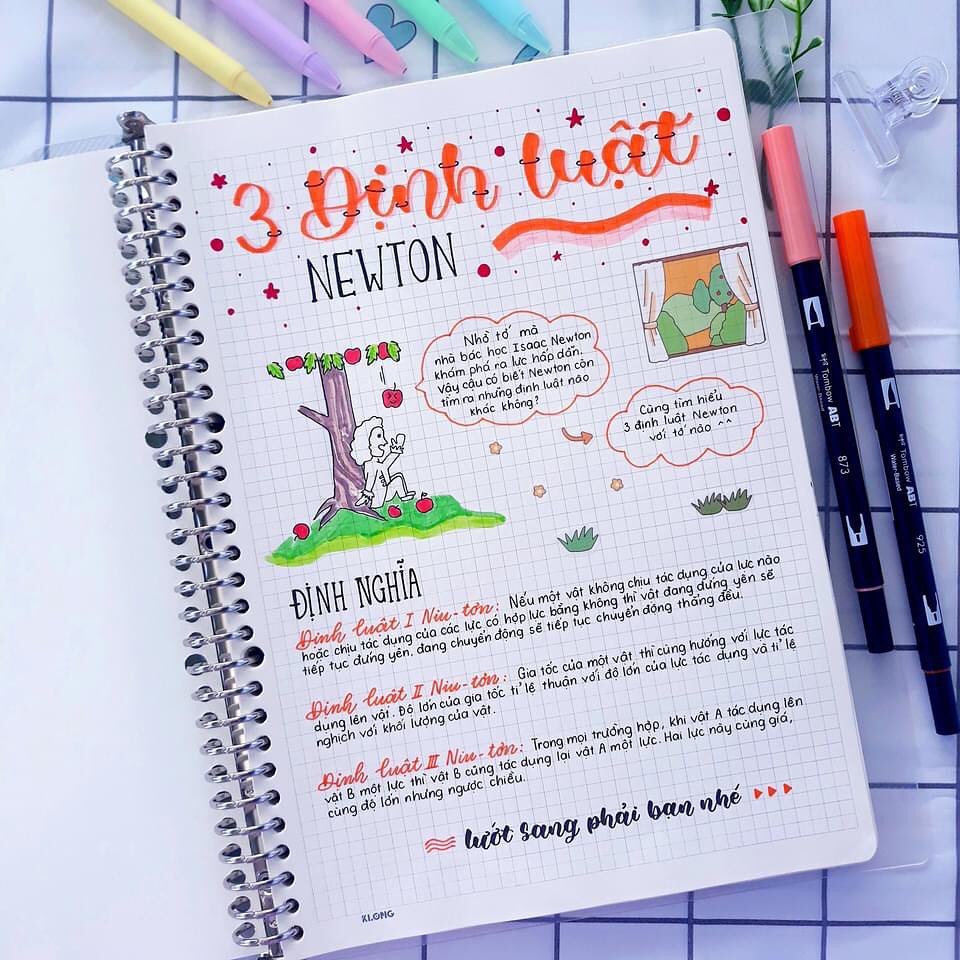 3 Định luật
NEWTON
Nhờ tớ mà
nhà bác học Isaac Newton
khám phá ra lực hấp dẫn.
Vậy cậu có biết Newton còn
tìm ra những định luật nào
khác không?
Cùng tìm hiểu
3 định luật Newton
với tớ nào ^^
ĐỊNH NGHĨA
Định luật I Niu-tơn: Nếu một vật không chịu tác dụng của lực nào
hoặc chịu tác dụng của các lực có hợp lực bằng không thì vật đang đứng yên sẽ
tiếp tục đứng yên, đang chuyển động sẽ tiếp tục chuyển động thẳng đều.
Định luật II Niu-tơn: Gia tốc của một vật thì cùng hướng với lực tác
dụng lên vật. Độ lớn của gia tốc tỉ lệ thuận với độ lớn của lực tác dụng và tỉ lệ
nghịch với khối lượng của vật.
Định luật III Niu-tơn: Trong mọi trường hợp, khi vật A tác dụng lên
vật B một lực thì vật B cũng tác dụng lại vật A một lực. Hai lực này cùng giá,
cùng độ lớn nhưng ngược chiều.
lướt sang phải bạn nhé
KLONG
Tombow ABT
873
Tombow ABT
925